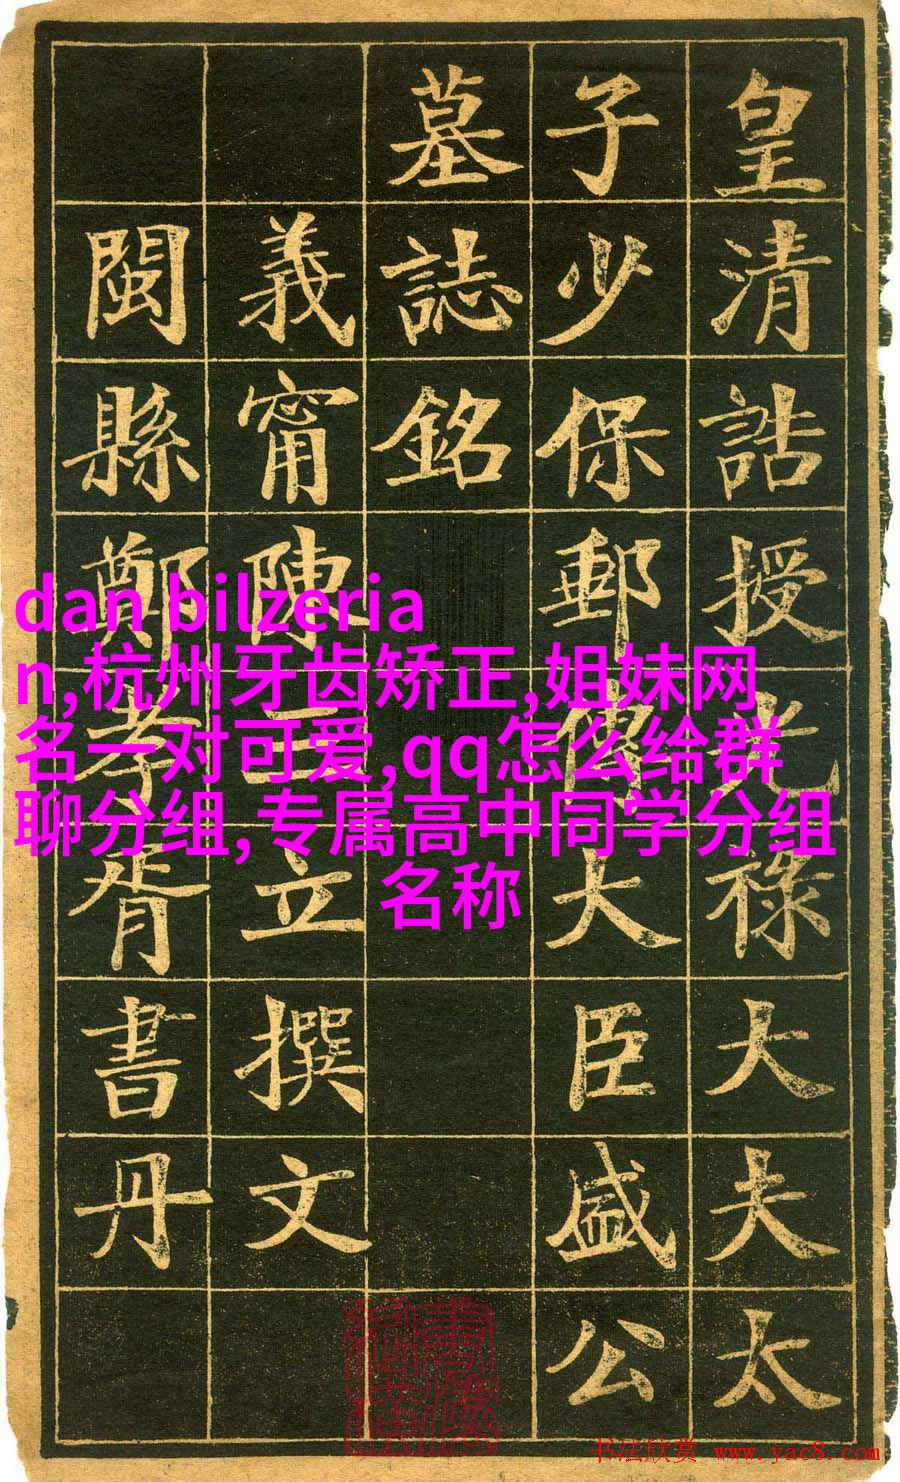 皇清誥授光祿大夫太
子少保郵傳大臣盛公
墓誌銘
義甯陳三立撰文
閩縣鄭孝胥書丹
dan bilzeria
n,杭州牙齿矫正,姐妹网
名一对可爱,qq怎么给群
聊分组,专属高中同学分组
名称
书法欣赏 www.yac8.com